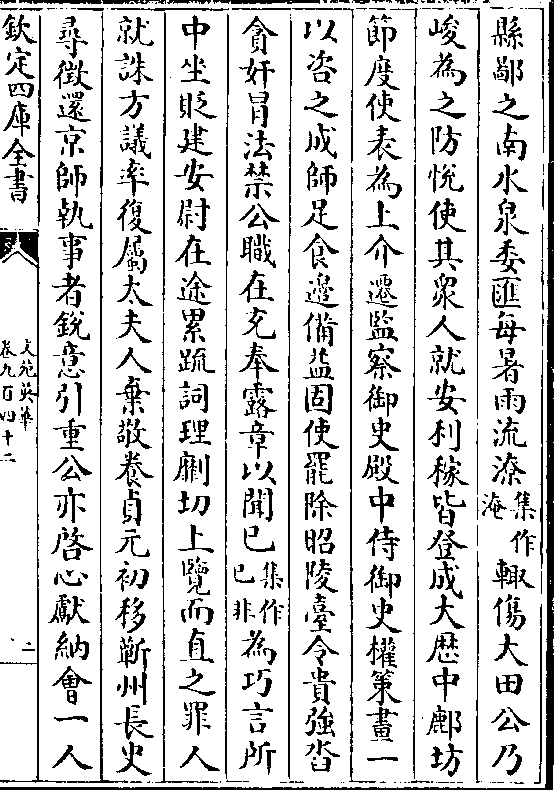 縣鄙之南水泉委匯每暑雨流潦集作淹輙傷大田公乃
峻為之防悅使其衆人就安利稼皆登成大歴中鄜坊
節度使表為上介遷監察御史殿中侍御史權筞畫一
以咨之成師足食邊備益固使罷除昭陵臺令貴強沓
貪奸冒法禁公職在充奉露章以聞已集作已非為巧言所
中坐貶建安尉在途累䟽詞理劘切上覽而直之罪人
就誅方議率復屬太夫人棄敬養貞元初移蘄州長史
尋徵還京師執事者銳意引重公亦啓心獻納會一人
欽定四庫全書
文苑英華
卷九百四十二
二